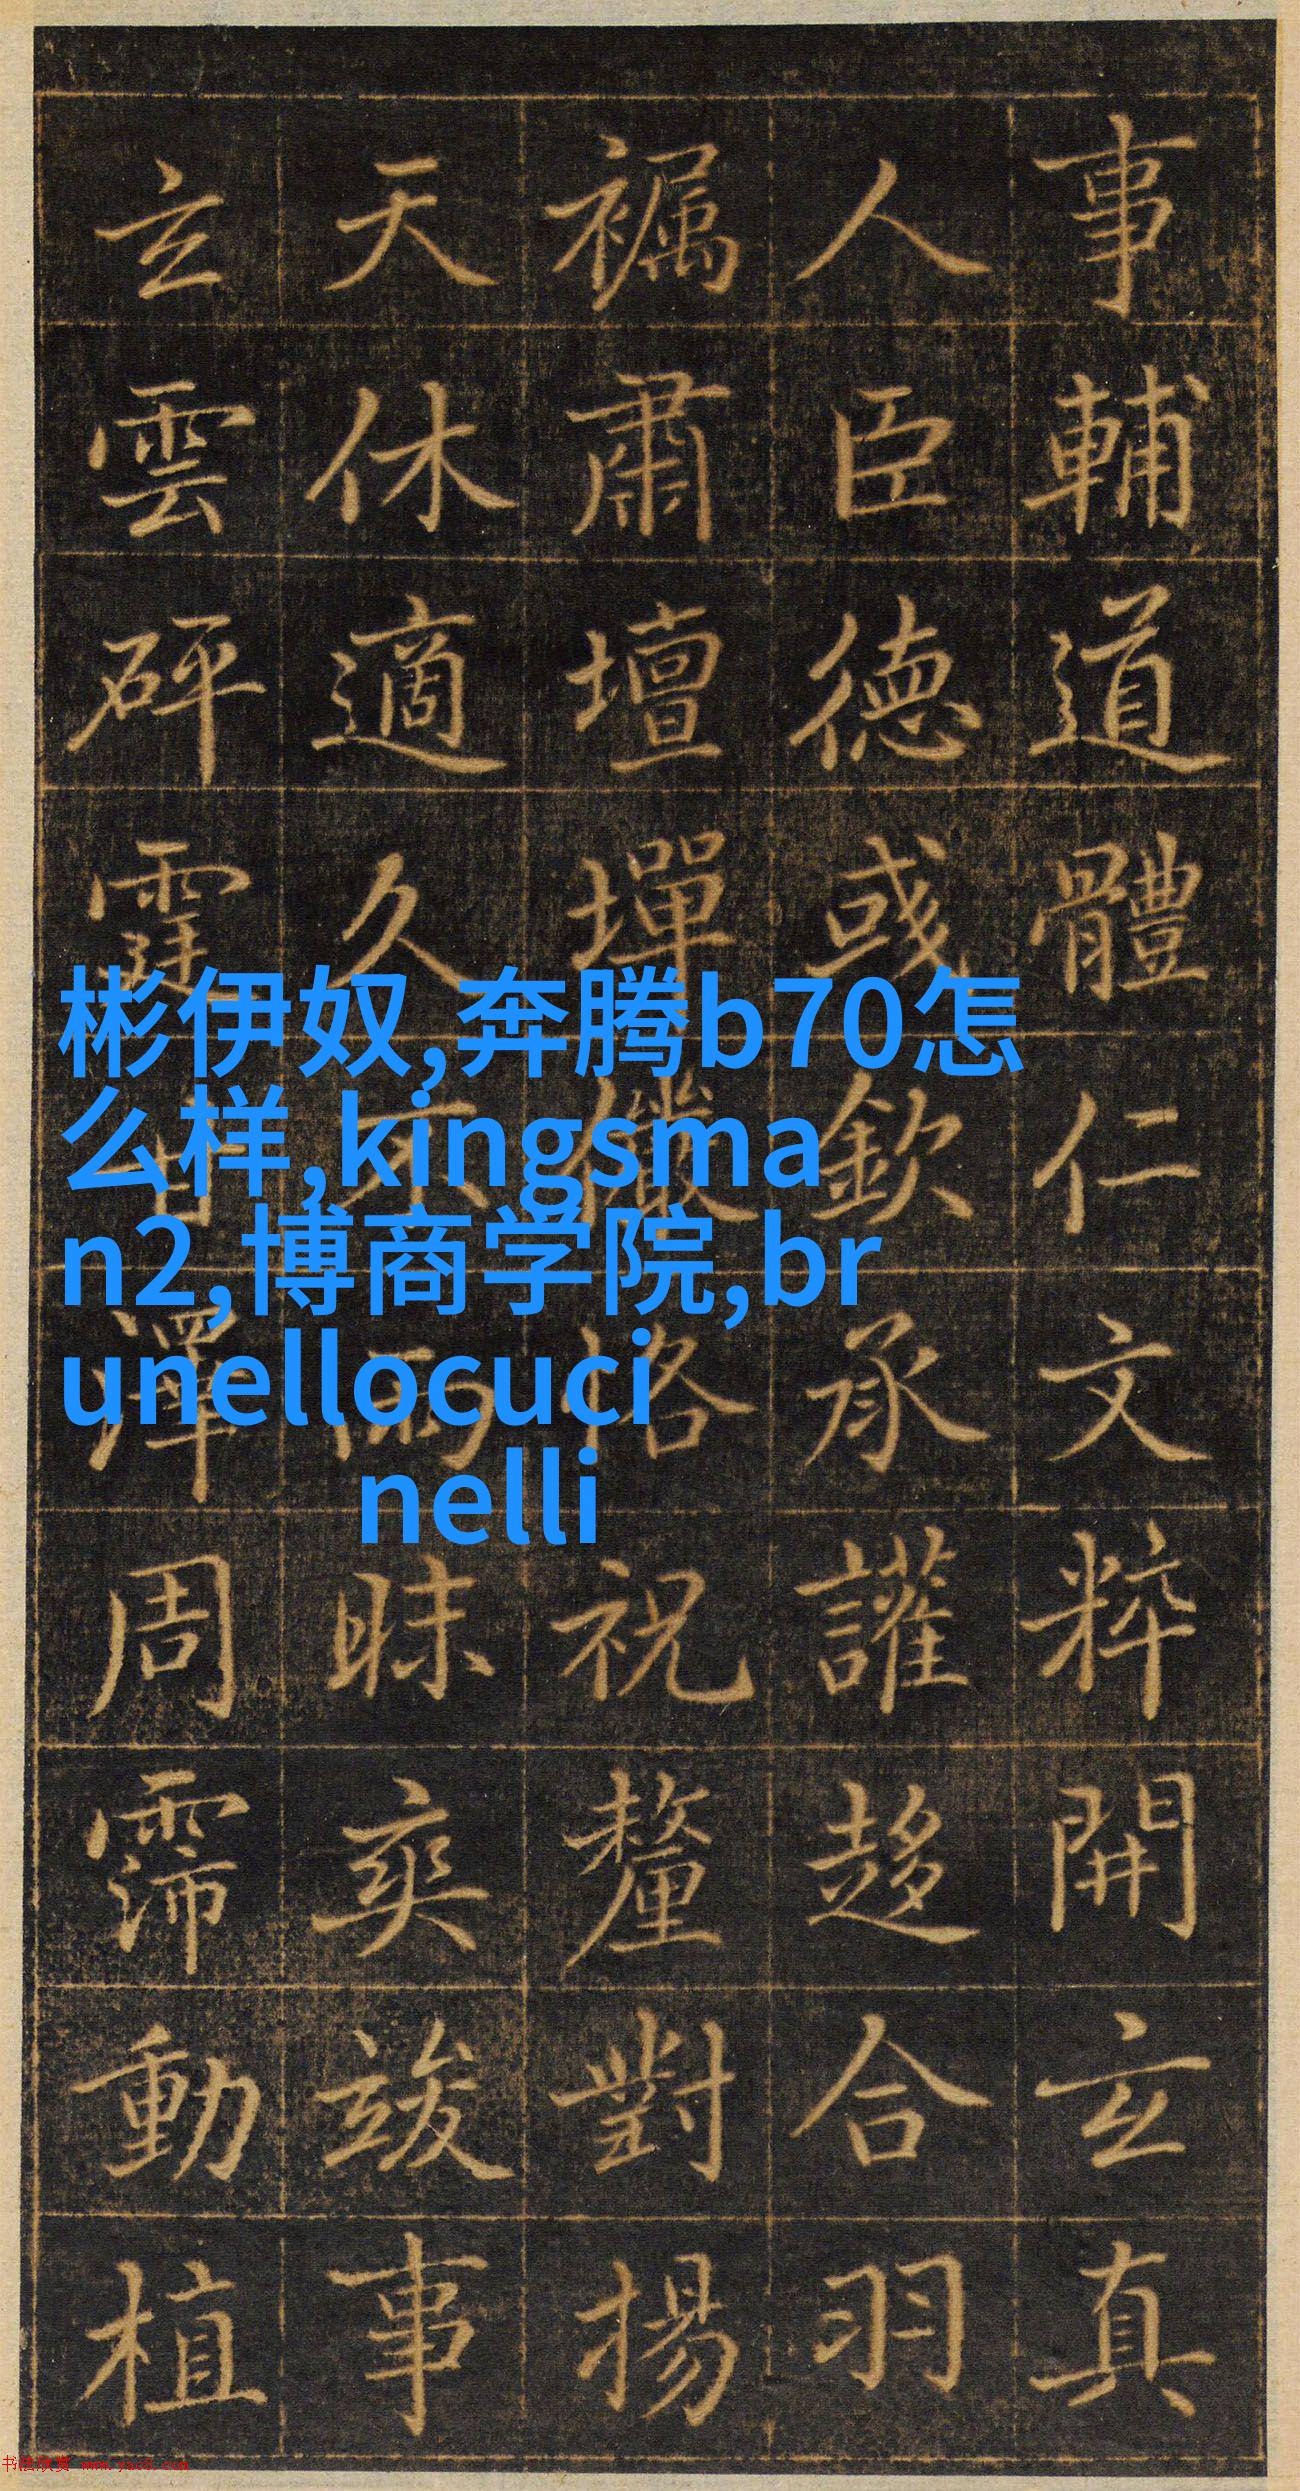 事輔道體仁文粹開玄真
人臣德或欽承讙趍合羽
肅壇墠恪祝釐對揚
天休適久不雨昧爽竣事
玄雲砰霆甘澤周霈動植
彬伊奴,奔腾b70怎
么样,kingsma
n2,博商学院,br
unellocuci
nelli
书法欣赏 www.yac8.com